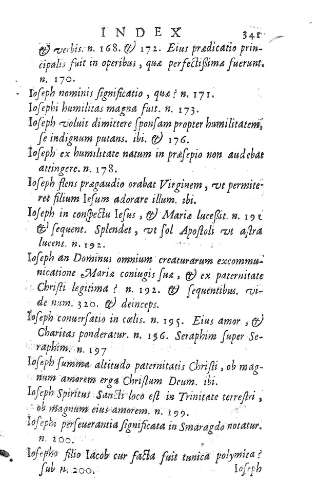 INDEX 341
& verbis. n. 168. & 172. Eius prædicatio prin-
cipalis fuit in operibus, quæ perfectissima fuerunt.
n. 170.
Ioseph nominis significatio, quæ? n. 171.
Iosephi humilitas magna fuit. n. 173.
Ioseph voluit dimittere sponsam propter humilitatem,
se indignum putans. ibi. & 176.
Ioseph ex humilitate natum in præsepio non audebat
attingere. n. 178.
Ioseph flens præ gaudio orabat Virginem, vt permite-
ret filium Iesum adorare illum. ibi.
Ioseph in conspectu Iesus, & Mariæ lucessit. n. 191
& sequent. Splendet, vt sol Apostoli vt astra
lucent. n. 192.
Ioseph an Dominus omnium creaturarum excommu-
nicatione Mariæ coniugis suæ, & ex paternitate
Christi legitima? n. 192. & sequentibus. vi-
de num. 320. & deinceps.
Ioseph conuersatio in cœlis. n. 195. Eius amor, &
Charitas ponderatur. n. 196. Seraphim super Se-
raphim. n. 197
Ioseph summa altitudo paternitatis Christi, ob mag-
num amorem erga Christum Deum. ibi.
Ioseph Spiritus Sancti loco est in Trinitate terrestri,
ob magnum eius amorem. n. 199.
Iosephi perseuerantia significata in Smaragdo notatur.
n. 200.
Iosepho filio Iacob cur facta fuit tunica polymica?
sub n. 200. Ioseph